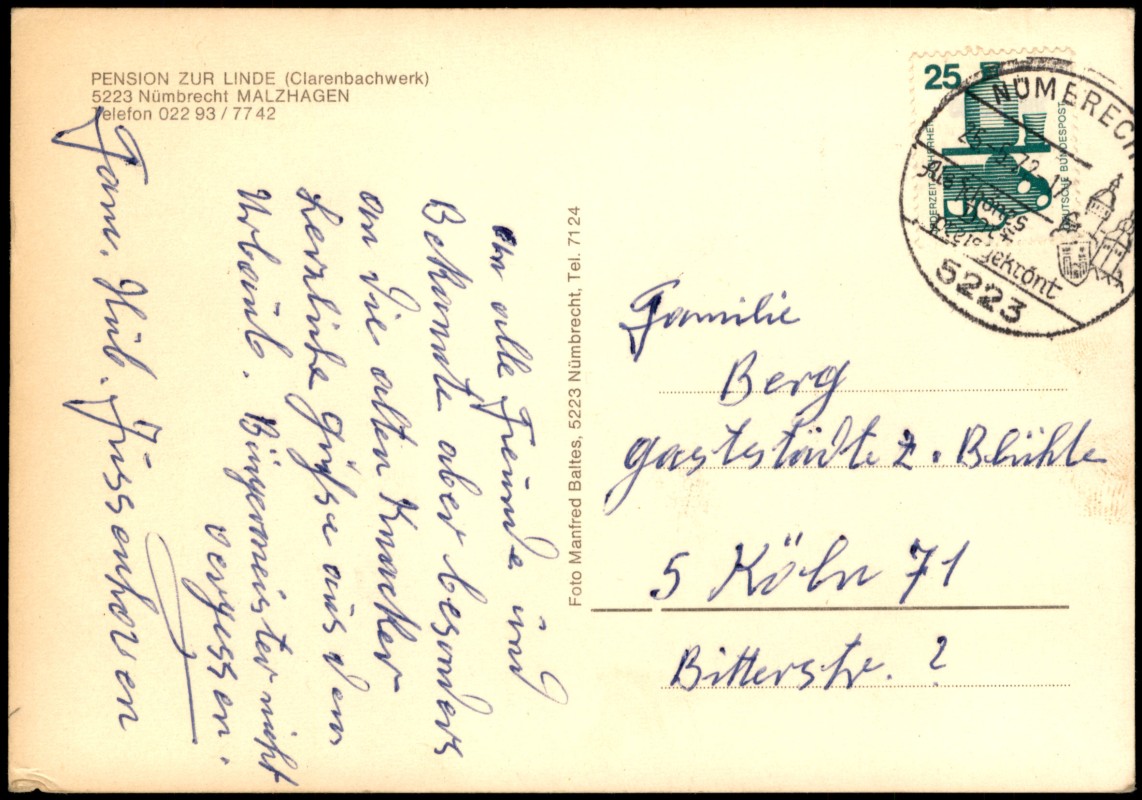 PENSION ZUR LINDE (Clarenbachwerk)
5223 Nümbrecht MALZHAGEN
Telefon 022 93 / 77 42
An alle Freunde und
Bekannte aber besonders
an die alten Knacker
herzliche Grüße aus dem
Urlaub. Bürgermeister nicht
vergessen.
Fam. Hub. Jüssenhoven
Foto Manfred Baltes, 5223 Nümbrecht, Tel. 7124
25
JEDERZEIT SICHERHEIT
DEUTSCHE BUNDESPOST
NÜMBRECHT
5223
Familie
Berg
Gaststädte z. Blühle
5 Köln 71
Bitterstr. ?